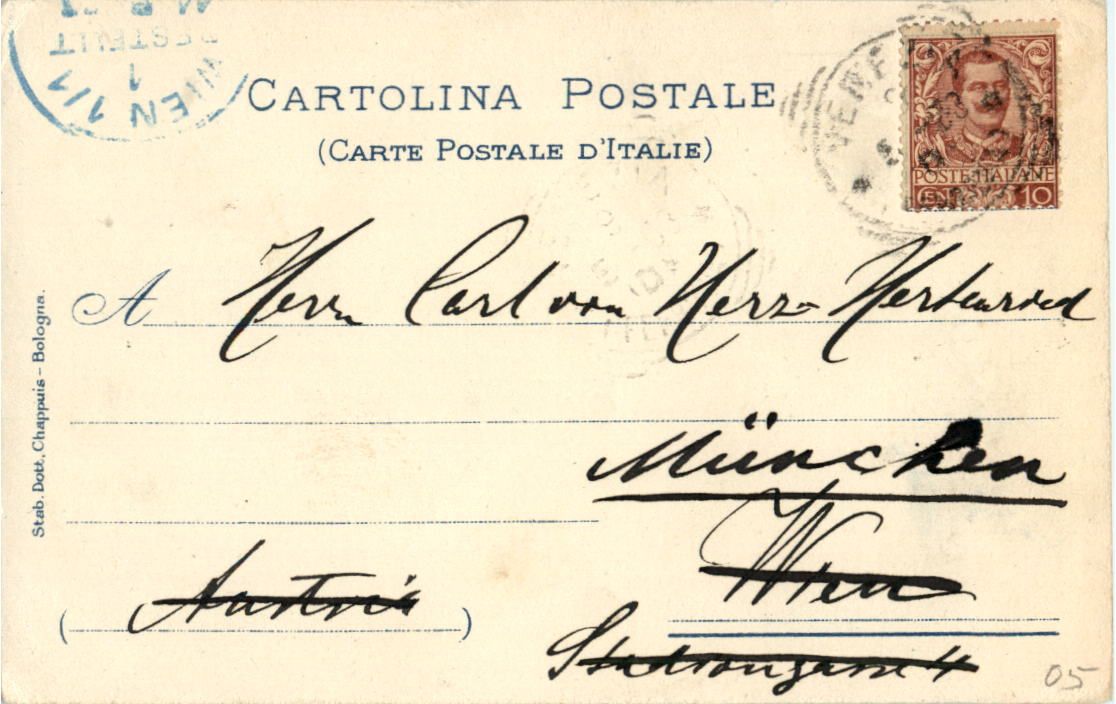 WIEN 1/1
1
BESTELLT
CARTOLINA POSTALE
(CARTE POSTALE D'ITALIE)
VENEZIA
POSTE ITALIANE
CENT. 10
A Herrn Carl von Herz-Hertenried
München
Wien
Austria
Stadiongasse 4
Stab. Dott. Chappuis - Bologna.
05